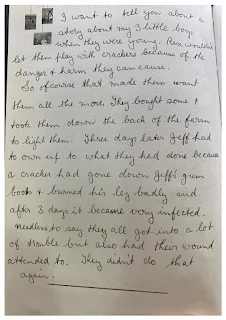 I want to tell you about a
story about my 3 little boys
when they were young. Rex wouldn't
let them play with crackers because of the
danger & harm they can cause.
So ofcourse that made them want
them all the more. They bought some &
took them down the back of the farm
to light them. Three days later Jeff had
to own up to what they had done because
a cracker had gone down Jeff's gum
boots & burned his leg badly and
after 3 days it became very infected.
needless to say they all got into a lot
of trouble but also had their wound
attended to. They didn't do that
again.